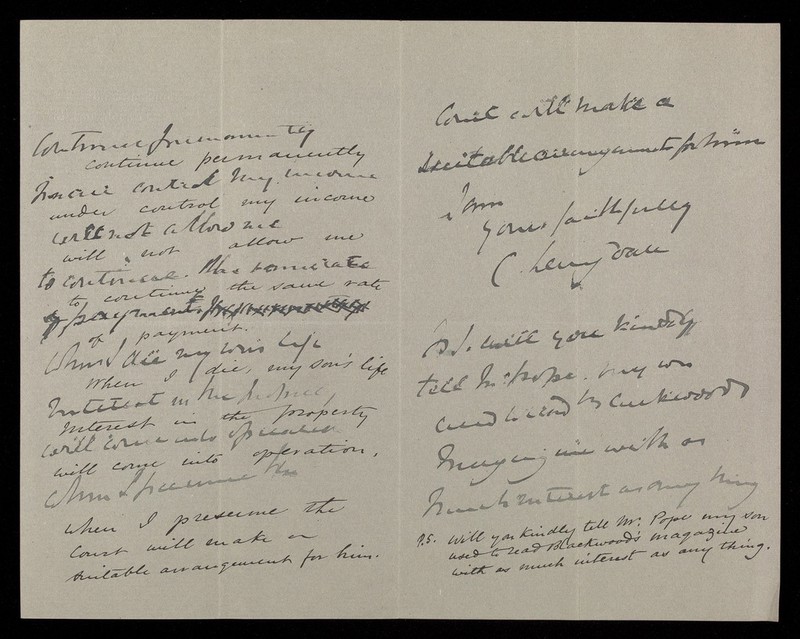 Continue permanently
continue permanently
under control my income
under control my income
will not allow me
will not allow me
to continue the same rate
to continue the same rate
of payment.
of payment.
When I die my son's life
When I die, my son's life
Interest in the property
Interest in the property
will come into operation
will come into operation,
when I presume the
when I presume the
Court will make an
suitable arrangement for him.
Court will make a
suitable arrangement for him
I am
yours faithfully
C.
P.S. will you kindly
tell Mr Pope my son
used to read Blackwoods
Magazine with as
much interest as any thing
P.S. Will you kindly tell Mr. Pope my son
used to read Blackwood's magazine
with as much interest as any thing.